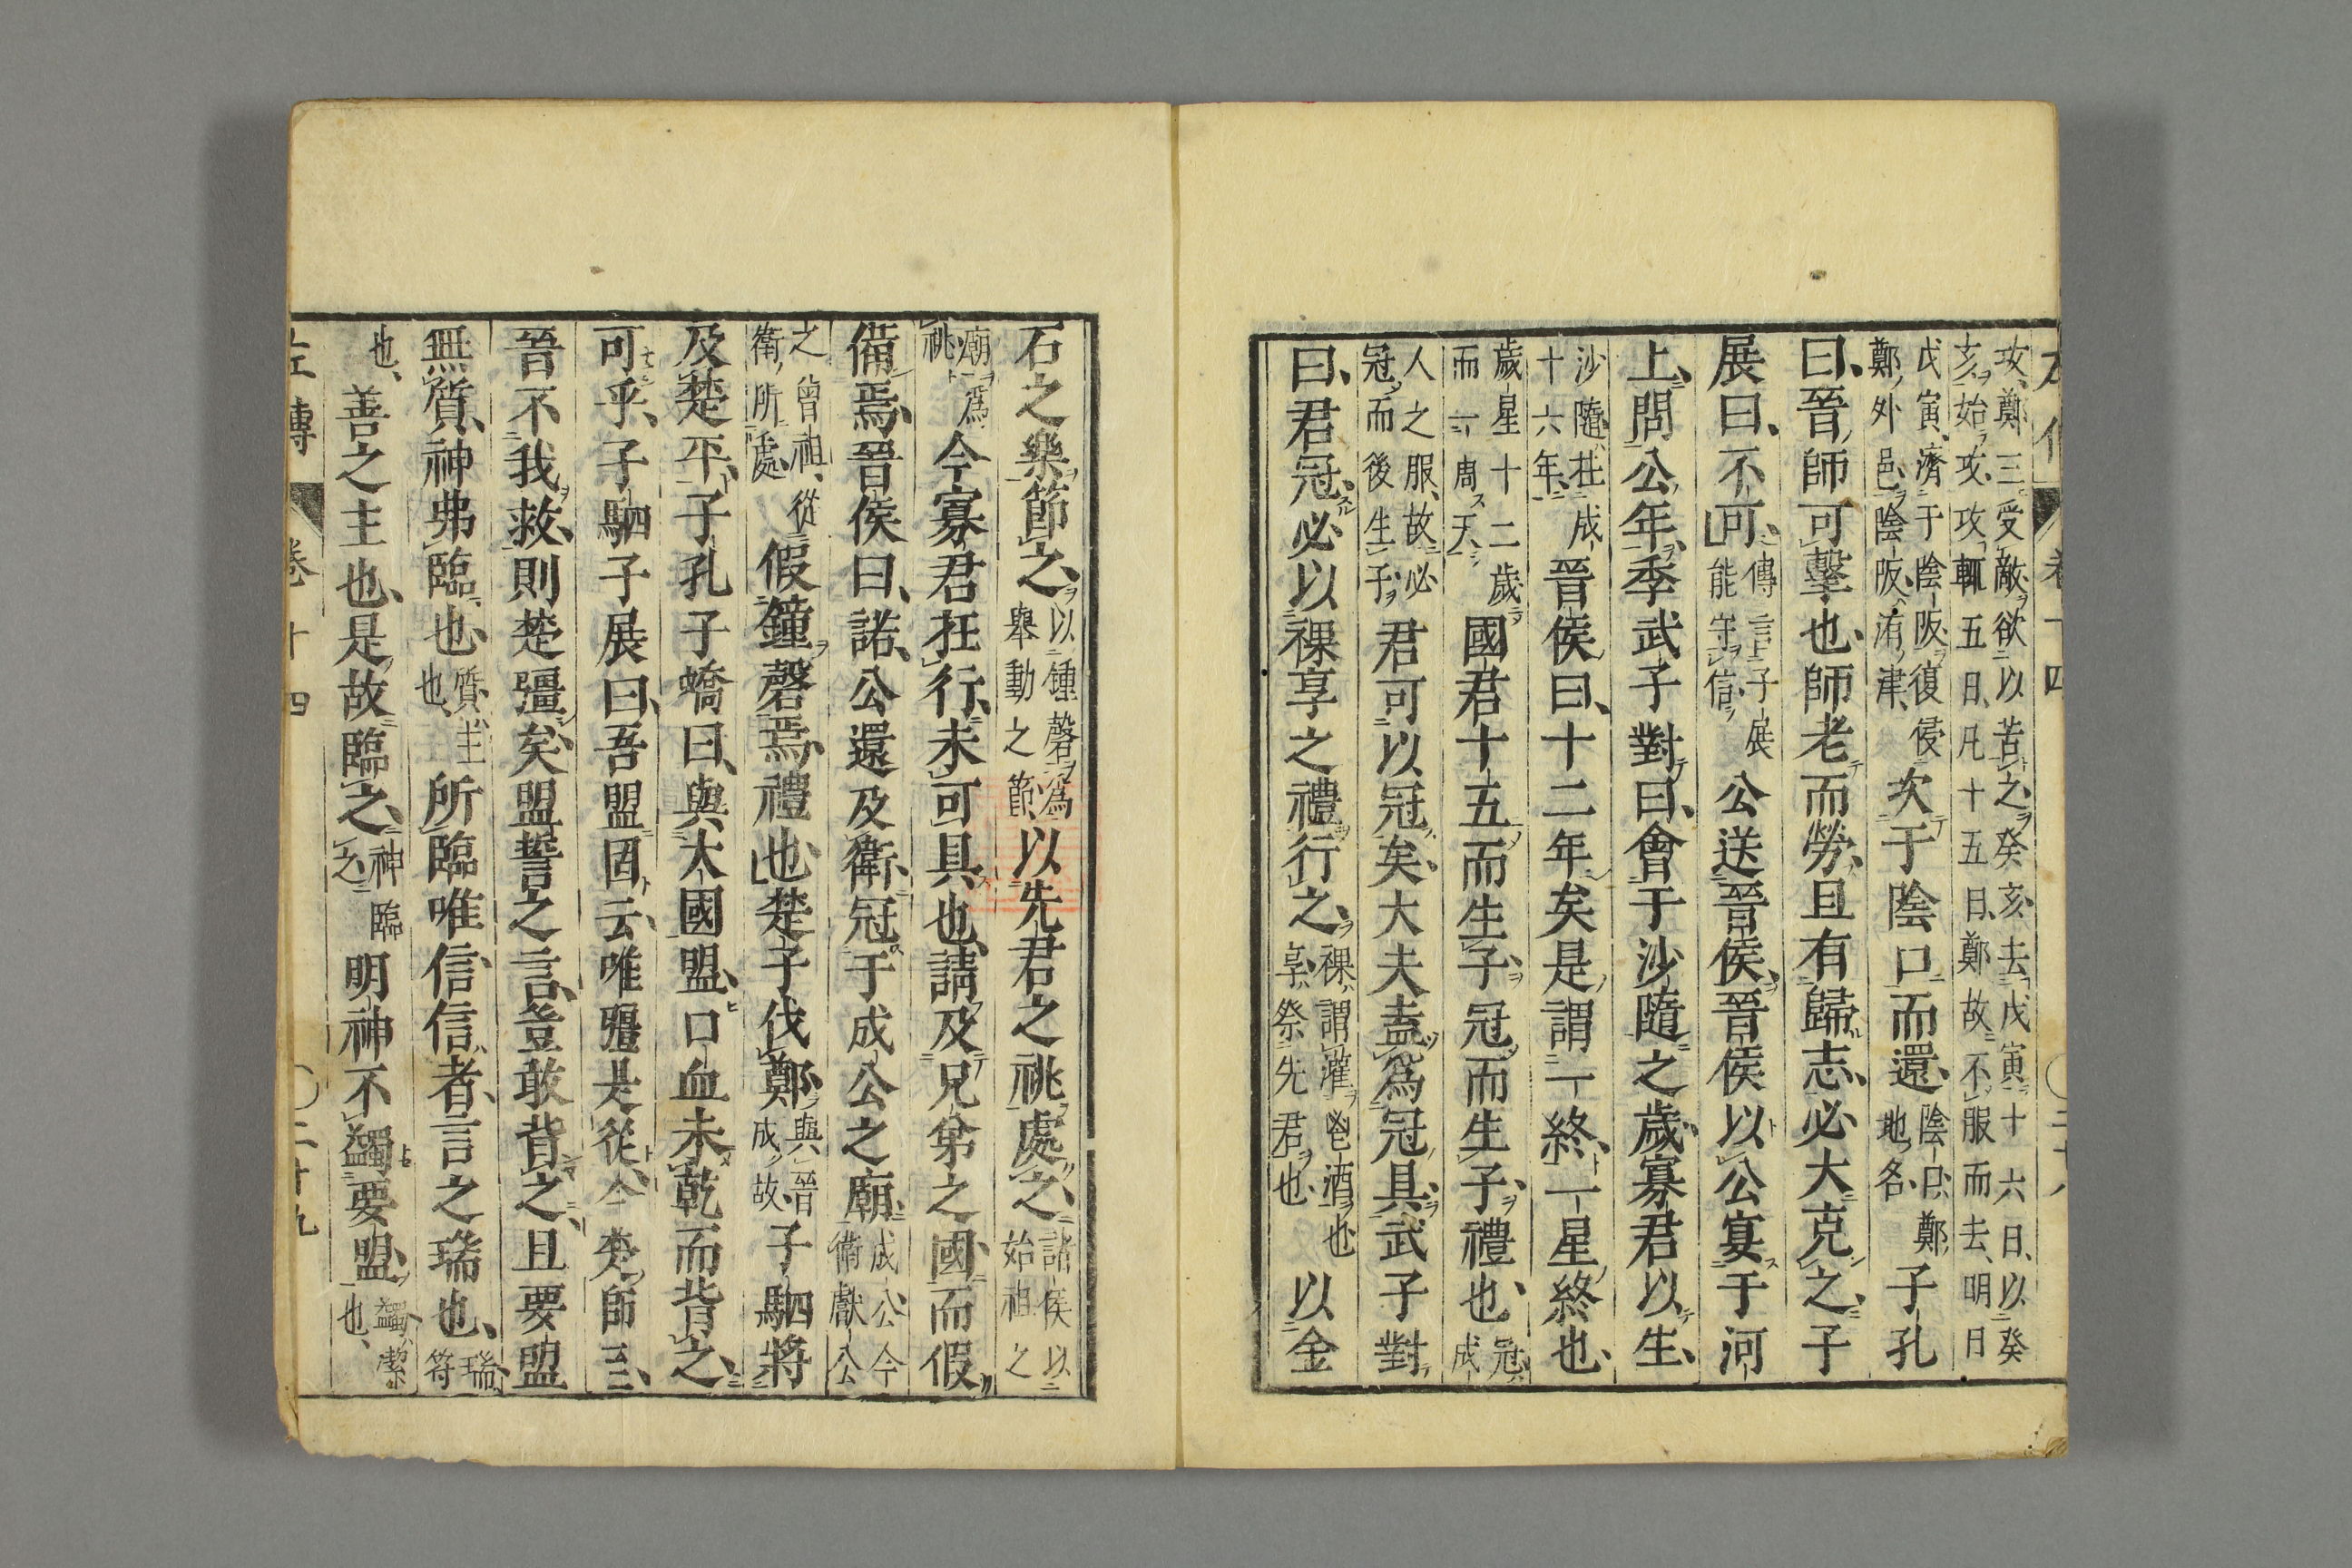 攻鄭三受敵欲以苦之癸亥去戊寅十六日以癸
亥始攻攻輒五日凡十五日鄭故不服而去明日
戊寅濟于陰阪復侵
鄭外邑陰阪洧津
次于陰口而還
陰口鄭
地名
子孔
曰晉師可擊也師老而勞且有歸志必大克之子
展曰不可
傳言子展
能守信
公送晉侯晉侯以公宴于河
上問公年季武子對曰會于沙隨之歲寡君以生
沙隨在成
十六年
晉侯曰十二年矣是謂一終一星終也
歲星十二歲
而一周天
國君十五而生子冠而生子禮也
冠成
人之服故必
冠而後生子
君可以冠矣大夫盍爲冠具武子對
曰君冠必以祼享之禮行之
祼謂灌鬯酒也
享祭先君也
以金
石之樂節之
以鍾磬爲
舉動之節
以先君之祧處之
諸侯以
始祖之
廟爲
祧
今寡君在行未可具也請及兄弟之國而假
備焉晉侯曰諾公還及衛冠于成公之廟
成公今
衛獻公
之曾祖從
衛所處
假鐘磬焉禮也楚子伐鄭
與晉
成故
子駟將
及楚平子孔子蟜曰與大國盟口血未乾而背之
可乎子駟子展曰吾盟固云唯彊是從今楚師至
晉不我救則楚彊矣盟誓之言豈敢背之且要盟
無質神弗臨也
質主
也
所臨唯信信者言之瑞也
瑞
符
也
善之主也是故臨之
神臨
之
明神不蠲要盟
蠲潔
也
左傳
卷十四
二十九